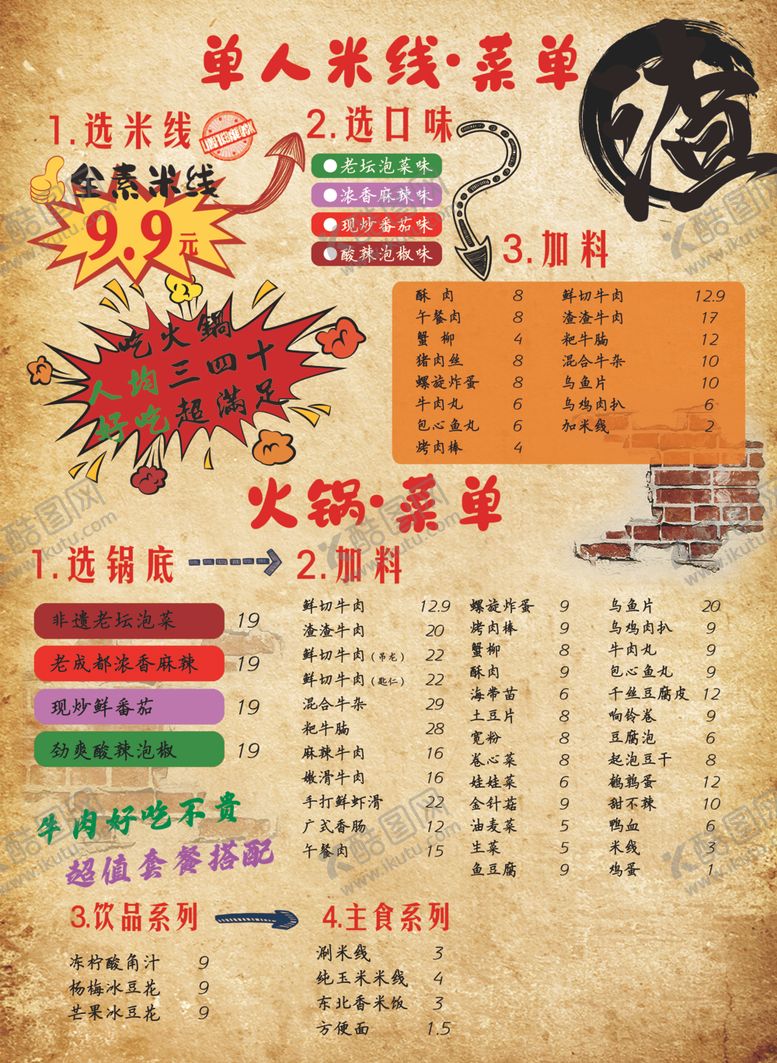 单人米线·菜单
渣
1.选米线
全素米线
9.9元
2.选口味
老坛泡菜味
浓香麻辣味
现炒番茄味
酸辣泡椒味
3.加料
酥肉 8
午餐肉 8
蟹柳 4
猪肉丝 8
螺旋炸蛋 8
牛肉丸 6
包心鱼丸 6
烤肉棒 4
鲜切牛肉 12.9
渣渣牛肉 17
粑牛腩 12
混合牛杂 10
乌鱼片 10
乌鸡肉扒 6
加米线 2
吃火鍋
人均三四十
好吃超滿足
火锅·菜单
1.选锅底
非遗老坛泡菜 19
老成都浓香麻辣 19
现炒鲜番茄 19
劲爽酸辣泡椒 19
牛肉好吃不贵
超值套餐搭配
2.加料
鲜切牛肉 12.9
渣渣牛肉 20
鲜切牛肉(吊龙) 22
鲜切牛肉(匙仁) 22
混合牛杂 29
粑牛腩 28
麻辣牛肉 16
嫩滑牛肉 16
手打鲜虾滑 22
广式香肠 12
午餐肉 15
螺旋炸蛋 9
烤肉棒 9
蟹柳 8
酥肉 9
海带苗 6
土豆片 8
宽粉 8
卷心菜 8
娃娃菜 6
金针菇 9
油麦菜 5
生菜 5
鱼豆腐 9
乌鱼片 20
乌鸡肉扒 9
牛肉丸 9
包心鱼丸 9
千丝豆腐皮 12
响铃卷 9
豆腐泡 6
起泡豆干 8
鹌鹑蛋 12
甜不辣 10
鸭血 6
米线 3
鸡蛋 1
3.饮品系列
冻柠酸角汁 9
杨梅冰豆花 9
芒果冰豆花 9
4.主食系列
涮米线 3
纯玉米米线 4
东北香米饭 3
方便面 1.5
酷图网
www.ikutu.com